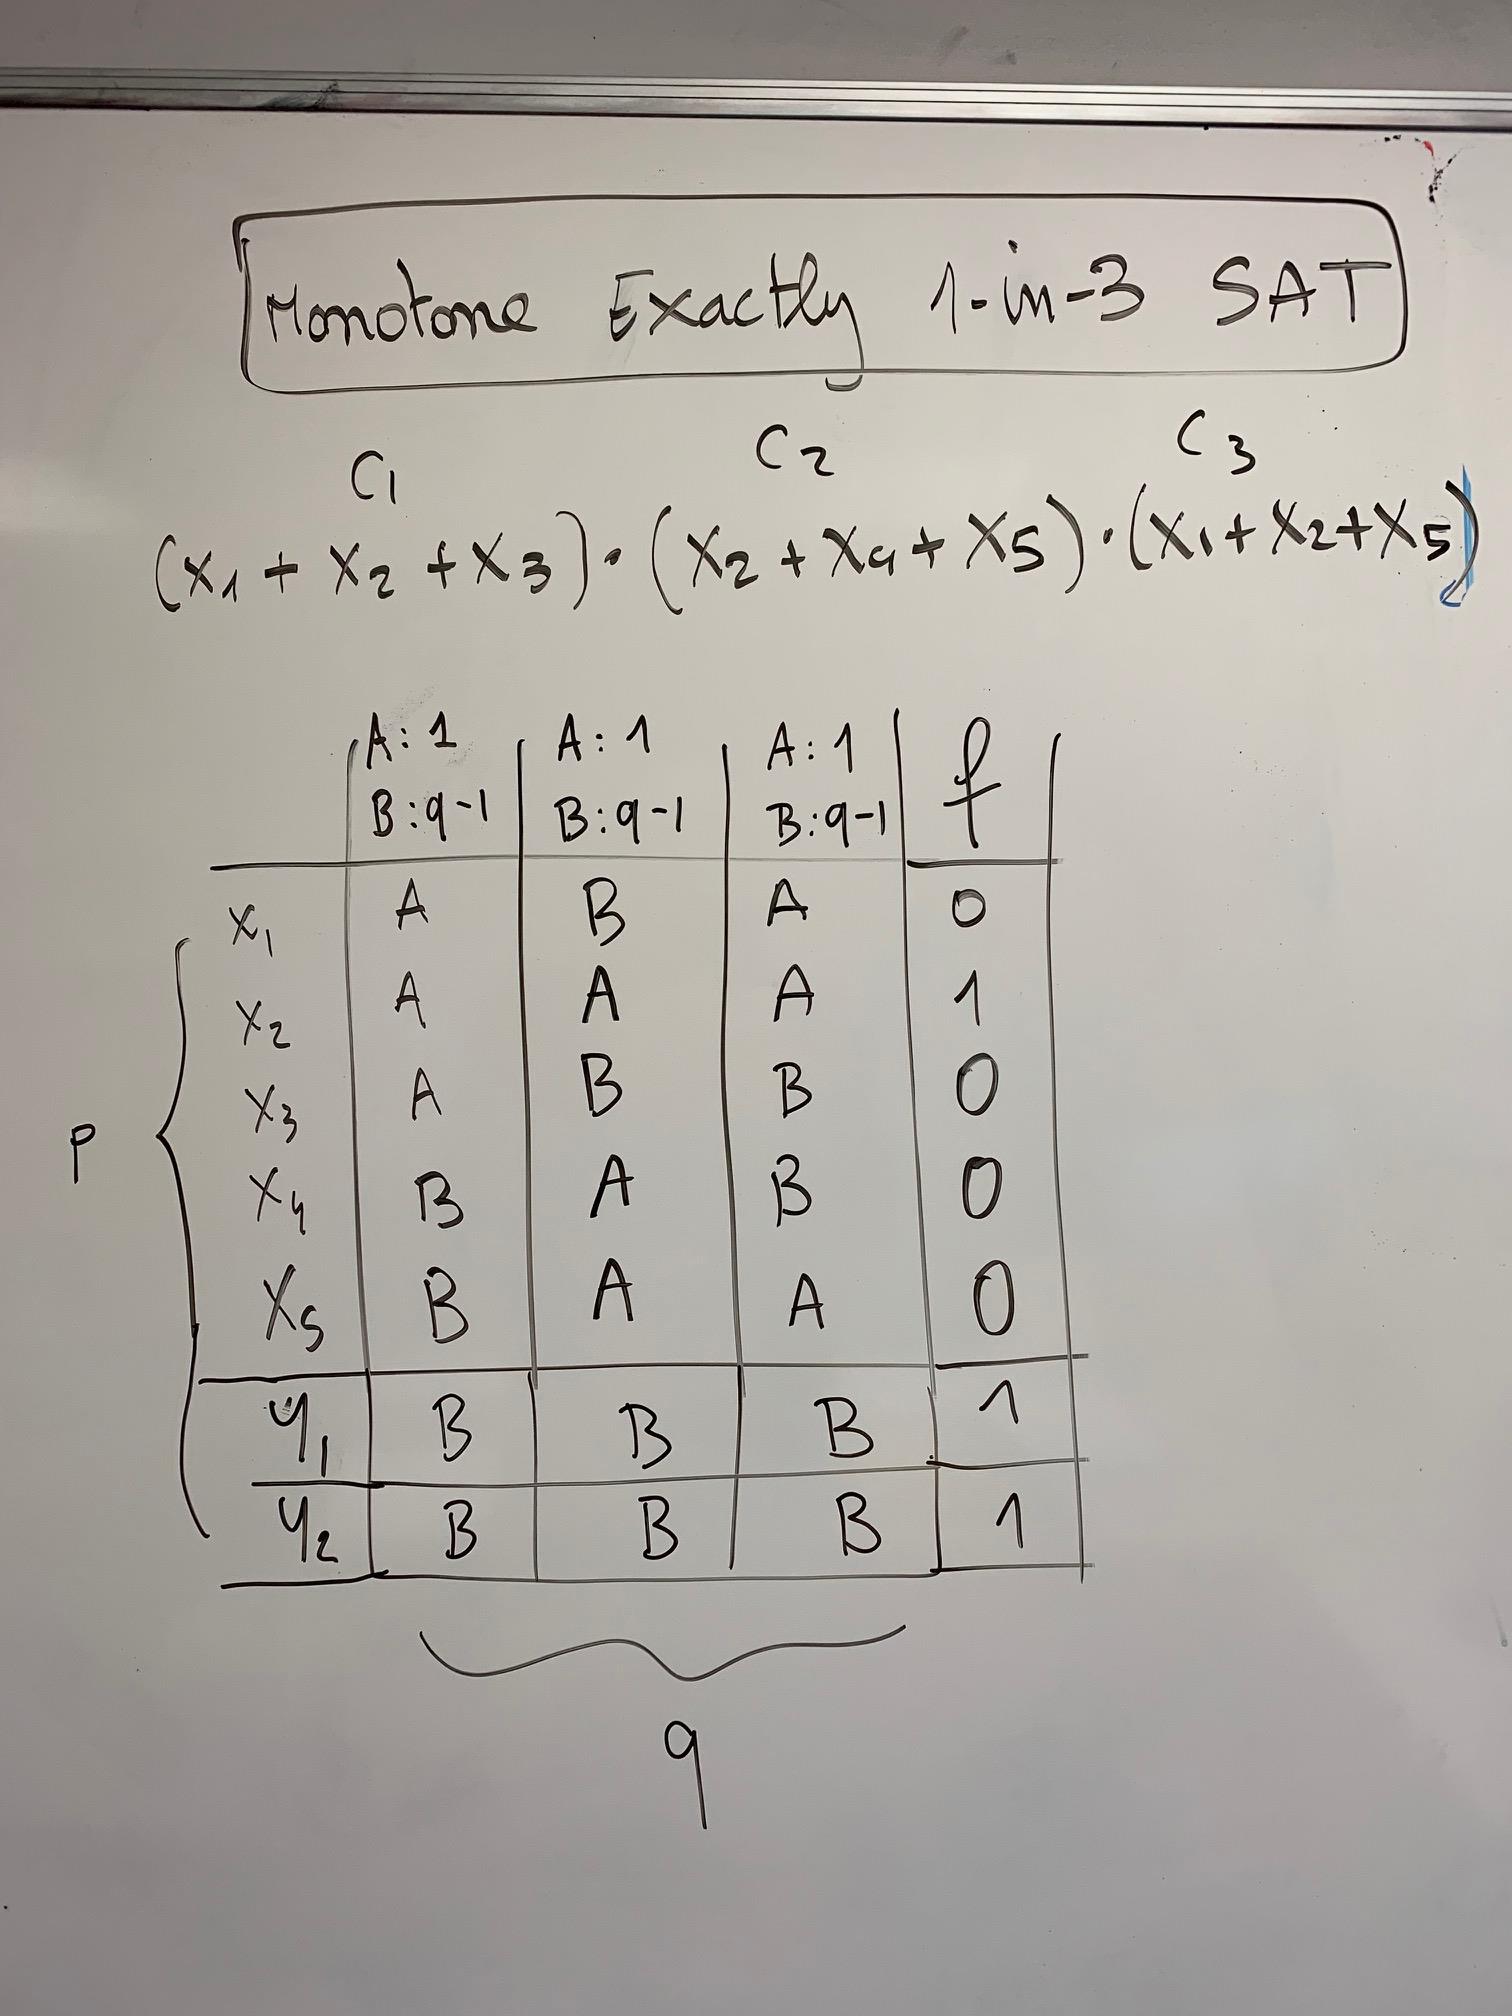 Monotone Exactly 1-in-3 SAT
C1 C2 C3
(x1 + x2 + x3) · (x2 + x4 + x5) · (x1 + x2 + x5)
A:1 A:1 A:1 f
B:q-1 B:q-1 B:q-1
x1 A B A 0
x2 A A A 1
x3 A B B 0
x4 B A B 0
x5 B A A 0
y1 B B B 1
y2 B B B 1
P
q